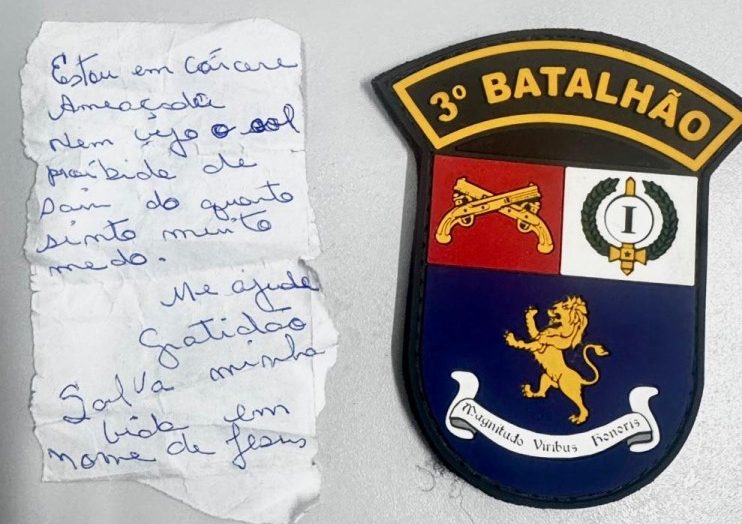 Estou em Cárcere
Ameaçada
Nem vejo o sol
proibida de
Sair do quarto
sinto muito
medo.
Me ajude
Gratidão
Salva minha
vida em
nome de Jesus
3º BATALHÃO
I
Magnitudo Viribus Honoris